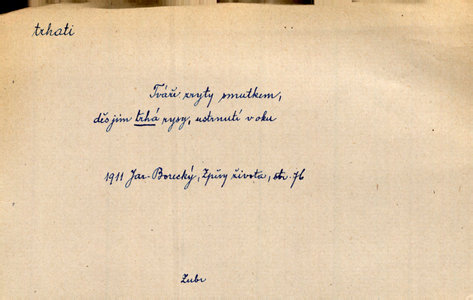 trhati
Tváře zryty smutkem,
děs jim trhá rysy, ustrnutí v oku
1911 Jar. Borecký, Zpívy života, str. 76
Zubr